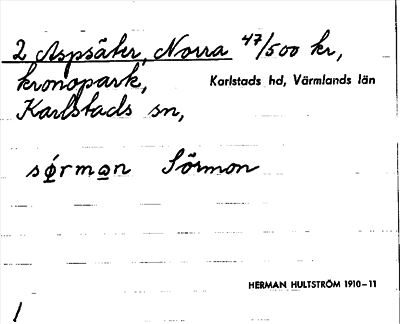 2 Aspsäter, Norra 47/500 kr,
kronopark,
Karlstads hd, Värmlands län
Karlstads sn,
sǿrmạn Sörmon
HERMAN HULTSTRÖM 1910-11
/